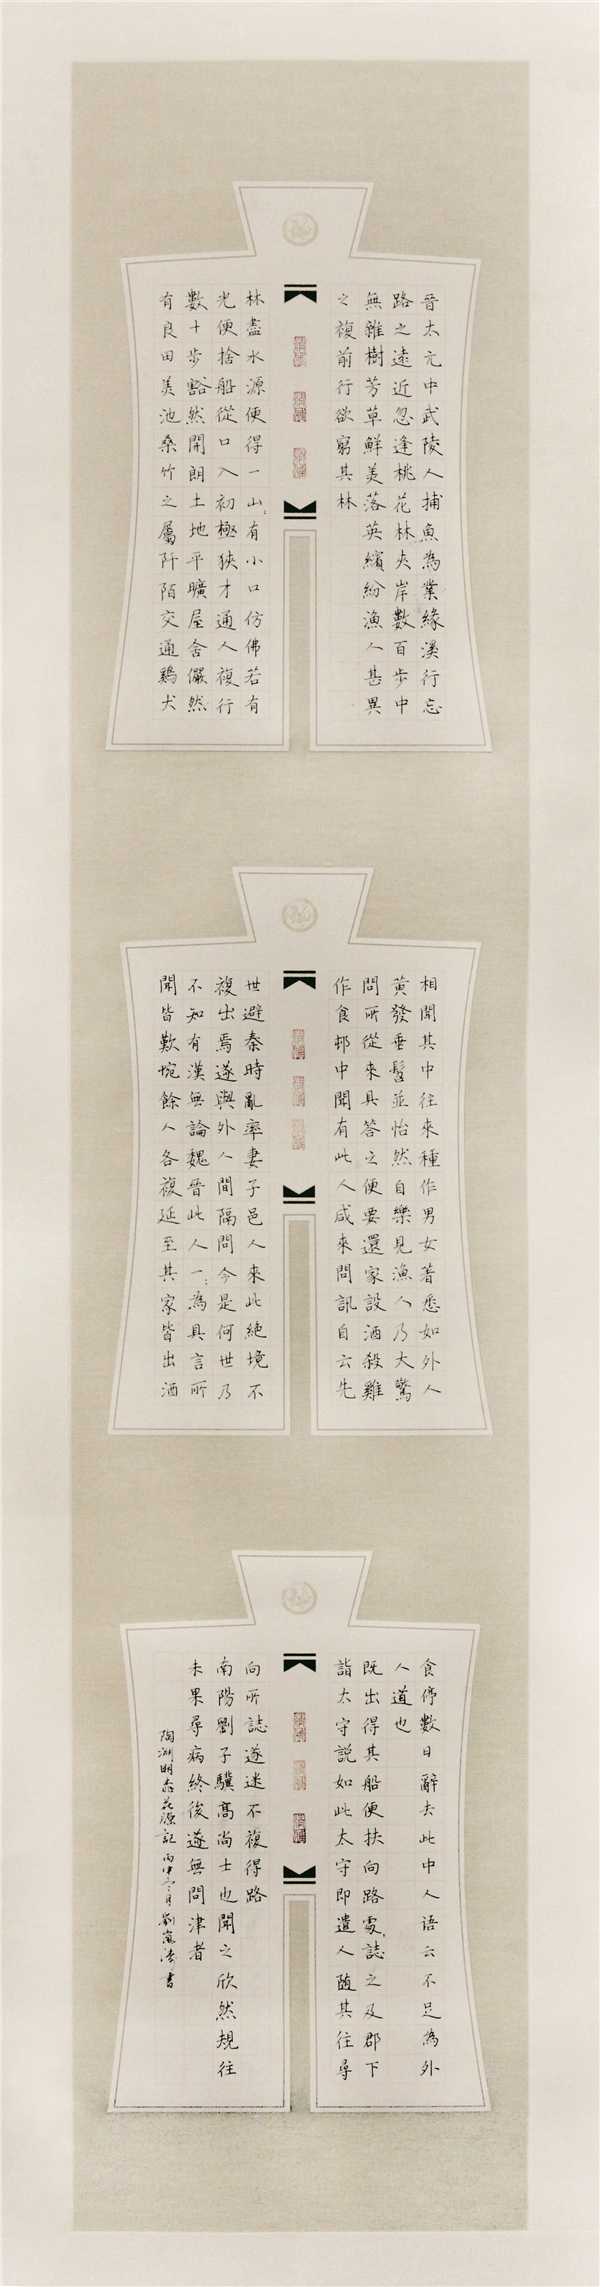 晉太元中武陵人捕魚為業緣溪行忘
路之遠近忽逢桃花林夾岸數百步中
無雜樹芳草鮮美落英繽紛漁人甚異
之複前行欲窮其林
林盡水源便得一山〻有小口仿佛若有
光便捨船從口入初極狹才通人複行
數十步豁然開朗土地平曠屋舍儼然
有良田美池桑竹之屬阡陌交通鷄犬
相聞其中往來種作男女著悉如外人
黃發垂髫並怡然自樂見漁人乃大驚
問所從來具答之便要還家設酒殺雞
作食邨中聞有此人咸來問訊自云先
世避秦時亂率妻子邑人來此絕境不
複出焉遂與外人間隔問今是何世乃
不知有漢無論魏晉此人一〻為具言所
聞皆歎惋餘人各複延至其家皆出酒
食停數日辭去此中人語云不足為外
人道也
既出得其船便扶向路處〻誌之及郡下
詣太守説如此太守即遣人隨其往尋
向所誌遂迷不複得路
南陽劉子驥高尚士也聞之欣然規往
未果尋病終後遂無問津者
陶淵明桃花源記丙申月劉書